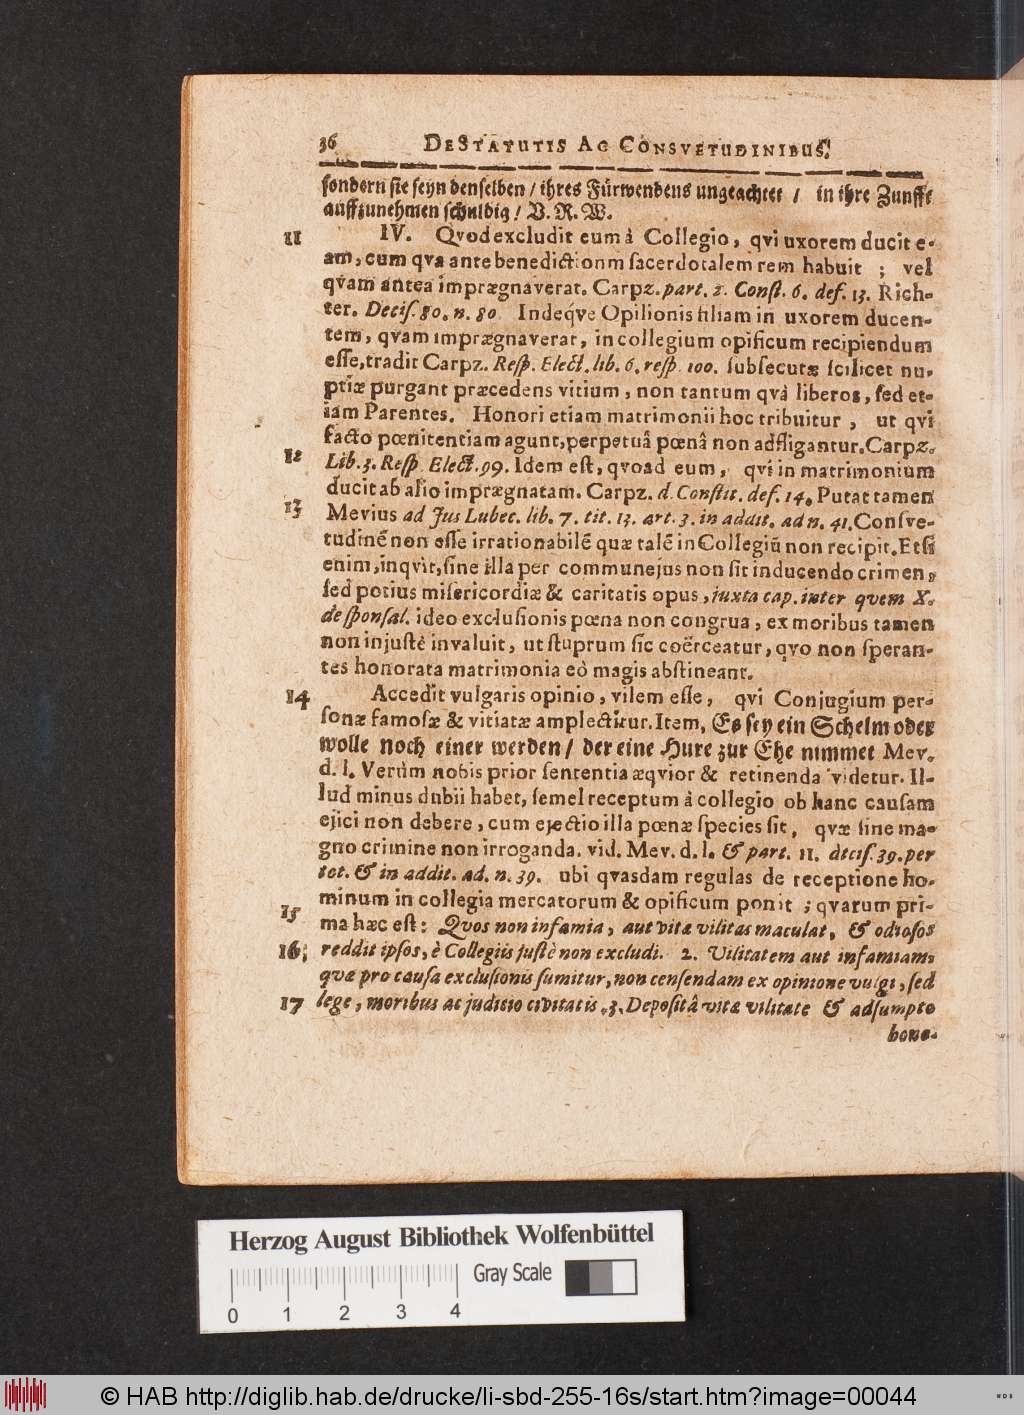 36 DE STATUTIS AC CONSVETUDINIBUS.
ſondern ſie ſeyn denſelben / ihres Fürwendens ungeachtet / in ihre Zunfft
auffzunehmen ſchuldig / V. R. W.
11 IV. Qvod excludit eum à Collegio, qvi uxorem ducit e-
am, cum qva ante benedictionm ſacerdotalem rem habuit ; vel
qvam antea imprægnaverat. Carpz. part. 2. Conſt. 6. def. 13. Rich-
ter. Deciſ. 80. n. 80 Indeq́ve Opilionis filiam in uxorem ducen-
tem, qvam imprægnaverat, in collegium opificum recipiendum
eſſe, tradit Carpz. Reſp. Elect. lib. 6. reſp. 100. ſubſecutæ ſcilicet nu-
ptiæ purgant præcedens vitium, non tantum qvà liberos, ſed et-
iam Parentes. Honori etiam matrimonii hoc tribuitur, ut qvi
facto pœnitentiam agunt, perpetuâ pœnâ non adfligantur. Carpz.
12 Lib. 3. Reſp Elect. 99. Idem eſt, qvoad eum, qvi in matrimonium
ducit ab alio imprægnatam. Carpz. d. Conſtit. def. 14. Putat tamen
13 Mevius ad Jus Lubec. lib. 7. tit. 13. art. 3. in addit. ad n. 41. Conſve-
tudinẽ non eſſe irrationabilẽ quæ talẽ in Collegiũ non recipit. Etſi
enim, inqvit, ſine illa per commune jus non ſit inducendo crimen,
ſed potius miſericordiæ & caritatis opus, juxta cap. inter qvem X.
de ſponſal. ideo excluſionis pœna non congrua, ex moribus tamen
non injuſtè invaluit, ut ſtuprum ſic coërceatur, qvo non ſperan-
tes honorata matrimonia eò magis abſtineant.
14 Accedit vulgaris opinio, vilem eſſe, qvi Conjugium per-
ſonæ famoſæ & vitiatæ amplectitur. Item, Es ſey ein Schelm oder
wolle noch einer werden / der eine Hure zur Ehe nimmet Mev.
d. l. Verùm nobis prior ſententia æqvior & retinenda videtur. Il-
lud minus dubii habet, ſemel receptum à collegio ob hanc cauſam
ejici non debere, cum ejectio illa pœnæ ſpecies ſit, qvæ ſine ma-
gno crimine non irroganda. vid. Mev. d. l. & part. 11. deciſ. 39. per
tot. & in addit. ad. n. 39. ubi qvasdam regulas de receptione ho-
minum in collegia mercatorum & opificum ponit ; qvarum pri-
15 ma hæc eſt: Qvos non infamia, aut vitæ vilitas maculat, & odioſos
16 reddit ipſos, è Collegiis juſtè non excludi. 2. Vilitatem aut infamiam,
qvæ pro cauſa excluſionis ſumitur, non cenſendam ex opinione vulgi, ſed
17 lege, moribus ac judicio civitatis. 3. Depoſitâ vitæ vilitate & adſumpto
bone-
Herzog August Bibliothek Wolfenbüttel
Gray Scale
0 1 2 3 4
© HAB http://diglib.hab.de/drucke/li-sbd-255-16s/start.htm?image=00044